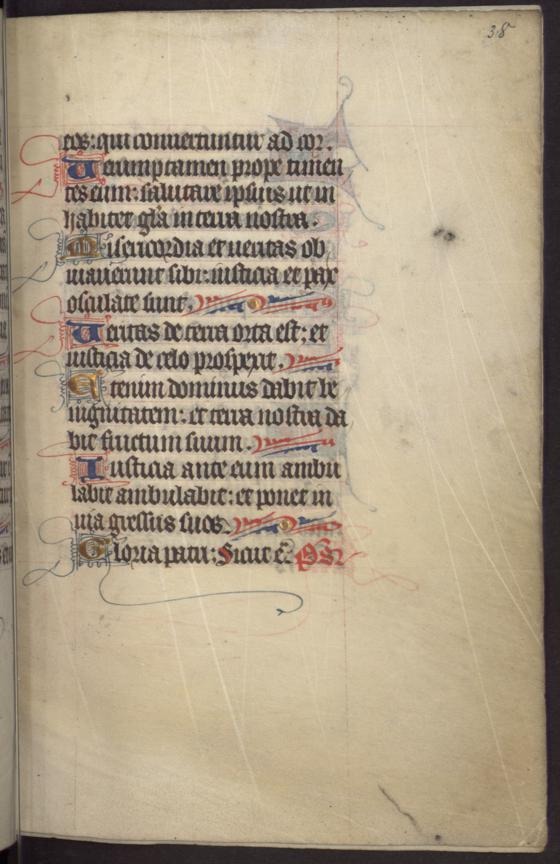 38
eos: qui conuertuntur ad cor.
Uerumptamen prope timen
tes eum: salutare ipsius ut in
habitet gl̄a in terra nostra.
Misericordia et ueritas ob
uiauerunt sibi: iusticia et pax
osculate sunt.
Ueritas de terra orta est: et
iusticia de celo prospexit.
Etenim dominus dabit be
nignitatem: et terra nostra da
bit fructum suum.
Iusticia ante eum ambu
labit ambulabit: et ponet in
uia gressus suos.
Gloria patri: Sicut e͛.